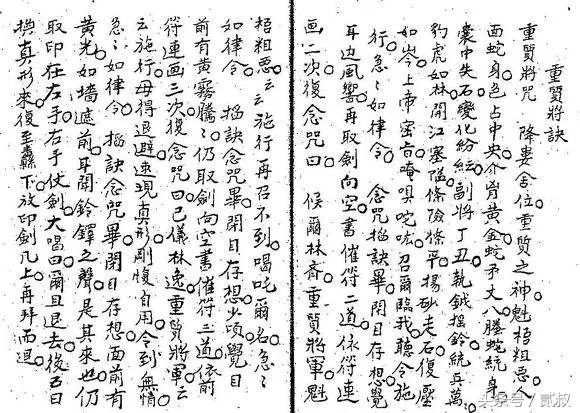 重質將訣
重質將咒　降婁舍位重質之神魁梧粗惡人
面蛇身色占中央介胄黃金蛇矛丈八騰蛇統身
囊中失石變化紛紜副將丁丑執鉞搖鈴統兵萬
豹虎如林開江塞隘條險條平揚砂走石復壓
如岑上帝密旨唵唄咤 召爾臨我聽令施
行急〻如律令　念咒搯訣畢閉目存想覺
耳边風響再取劍向空書催符二道依符連
画二次復念咒曰　候爾林斎重質將軍魁
梧粗惡云云施行再召不到喝叱爾名急〻
如律令　搯訣念咒畢閉目存想少頃覺目
前有黃霧騰〻仍取劍向空書催符三道依前
符連画三次復念咒曰已儀林逸重質將軍云
云施行毋得退避速現真形剛愎自用令到無情
急〻如律令　搯訣念咒畢閉目存想面前有
黃光如墻遮前耳聞鈴鐸之聲是其來也仍
取印在左手右手仗劍大唱曰爾且退去後五日
換真形來復至 下放印劍几上再拜而退
头条号 / 贰叔